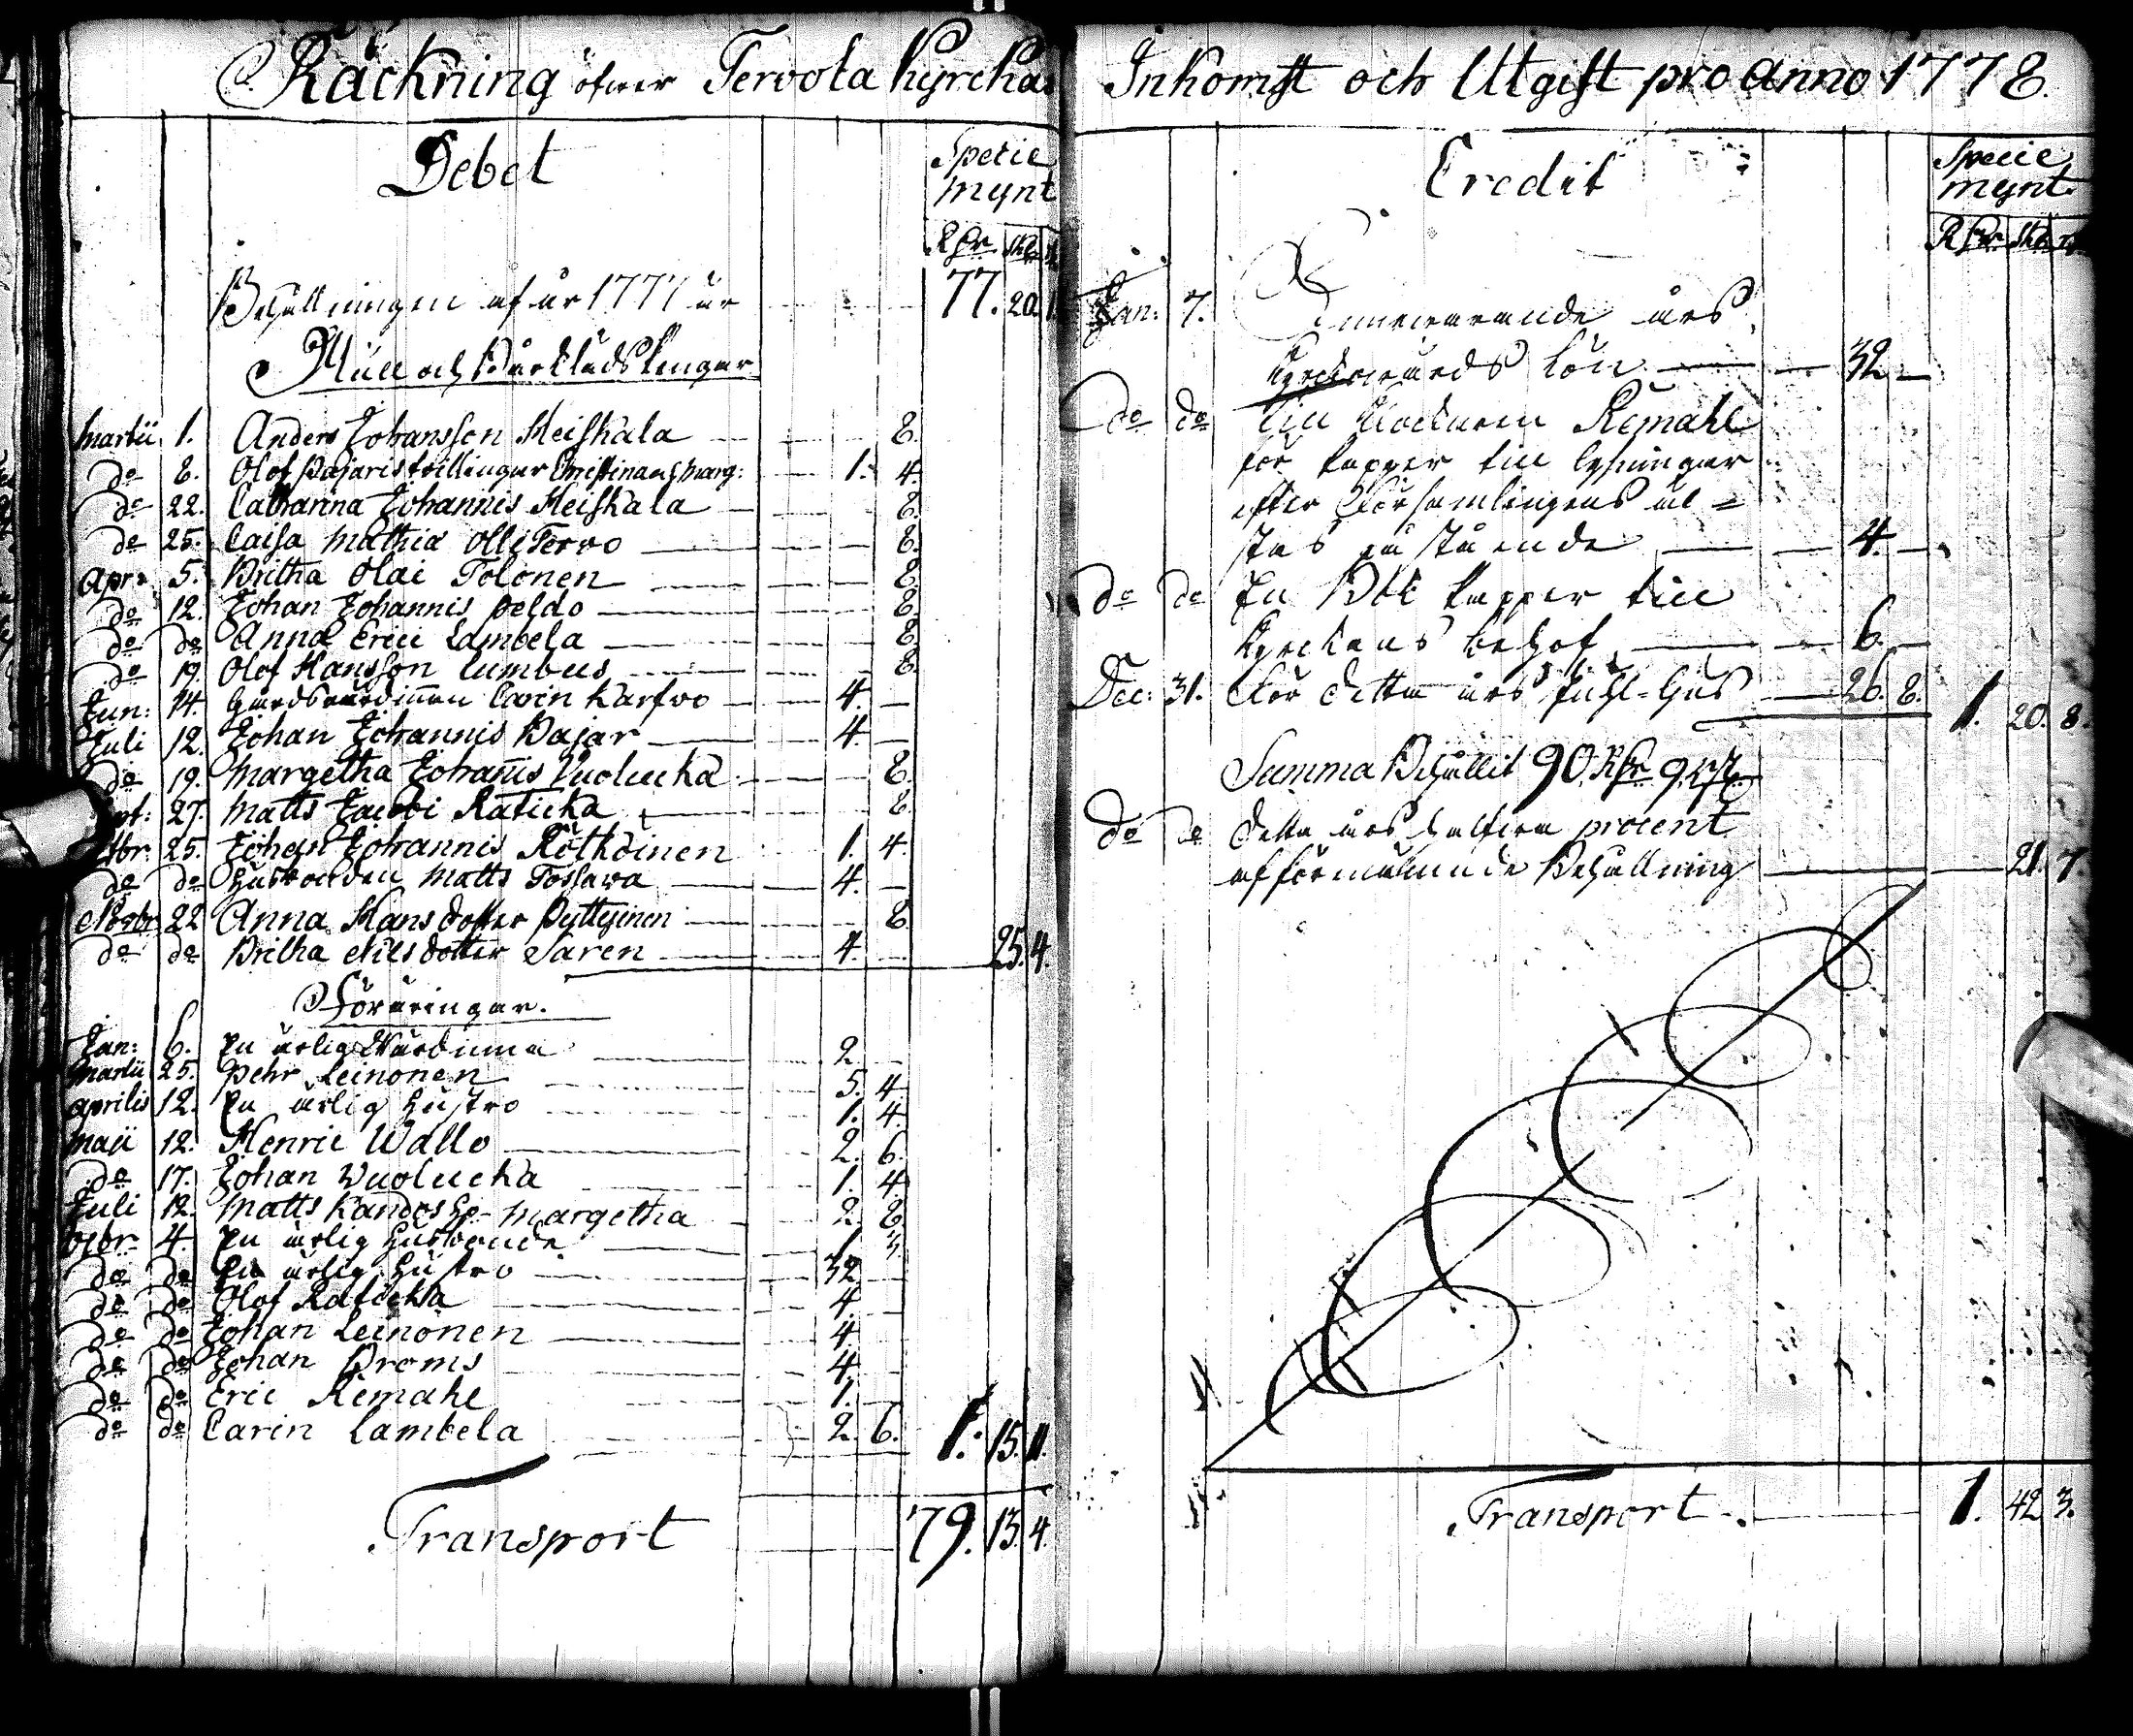 Räckning öfwer Tervola Kyrckas Inkomst och Utgift pro anno 1778.
Debet
Specie
mynt
Rdr Sk
Behållningen af år 1777 är 77. 20. 1
Mull och Bårklädspengar
Martii 1. Anders Johansson Heiskala 8.
do 8. Olof Pajaris tvillingar Christina och Marg: 1. 4.
do 22. Catharina Johannis Heiskala 8.
do 25. Caisa Mathiæ Olli Tervo 8.
Apr: 5. Britha Olai Tolonen 8.
do 12. Johan Johannis Peldo 8.
do do Anna Erici Lambela 8.
do 19. Olof Hansson Lumbus 8.
Jun: 14. Carin Karfvo 4.
Juli 12. Johan Johannis Bajar 4.
do 19. Margetha Johannis Vuolucka 8.
27. Matts Jacobi Raticka 8.
25. Johan Johannis Kötköinen 1. 4.
do do Husbonden Matts Tossava 4.
Novbr 22 Anna Hansdotter Pyttyinen 8.
do do Britha Nilsdotter Saren 4. 25. 4.
Föräringar.
Jan: 6. En ärlig Wärdinna 2.
Martii 25. Pehr Leinonen 5. 4.
Aprilis 12. En ärlig Hustro 1. 4.
Maii 12. Henric Wallo 2. 6.
do 17. Johan Vuolucka 1. 4.
Juli 12. Matts Kandos Margetha 2. 8.
4. En ärlig Husbonde 1.
do do En ärlig Hustro 32
do do Olof Raticka 4.
do do Johan Leinonen 4.
do do Johan Broms 4.
do do Eric Kemahl 1.
do do Carin Lambela 2. 6. 1. 15. 11.
Transport 79. 13. 4.
Credit
Specie
mynt
Rdr Sk
Jan: 7. Innevarande års
Kyrckovärds Lön 32
do do till Klockaren Kemahl
för papper till lysningar
efter Församlingens äl=
stas påstående 4.
do do En Bok papper till
Kyrckans behof 6.
Dec: 31. För detta års 26. 8. 1. 20. 8.
Summa Behållit 90 Rdr 9
do do detta års procent
af förmälande Behållning 21. 7.
Transport 1. 42. 3.